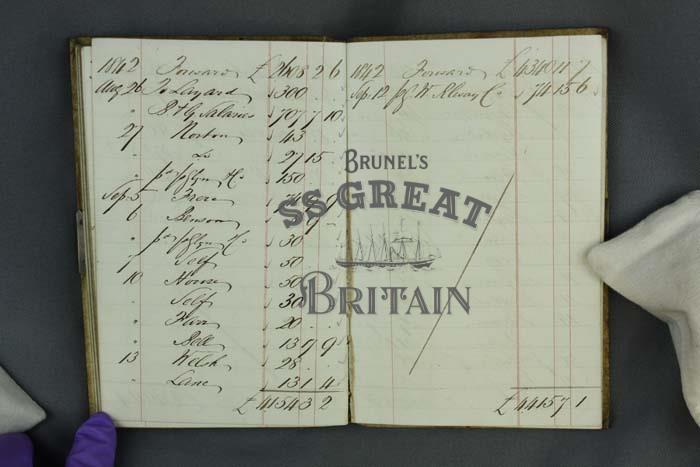 1842 Forward £ 2608 2 6
Aug 26 To Layard 300
" S & G Salaries 707 7 10
27 Norton 43
" Do 27 15
" 150
Sep. 5
6 Benson
" 30
7 Self 50
10 House 50
" Self 30
" 20
" Bell 137 9
13 Welsh 28
" Lane 131 4
£ 41543 2
1842 Forward £ 43401 1 7
Sep. 12 G W Rlway Co 741 5 6
£ 44157 1
BRUNEL'S
SS GREAT
BRITAIN